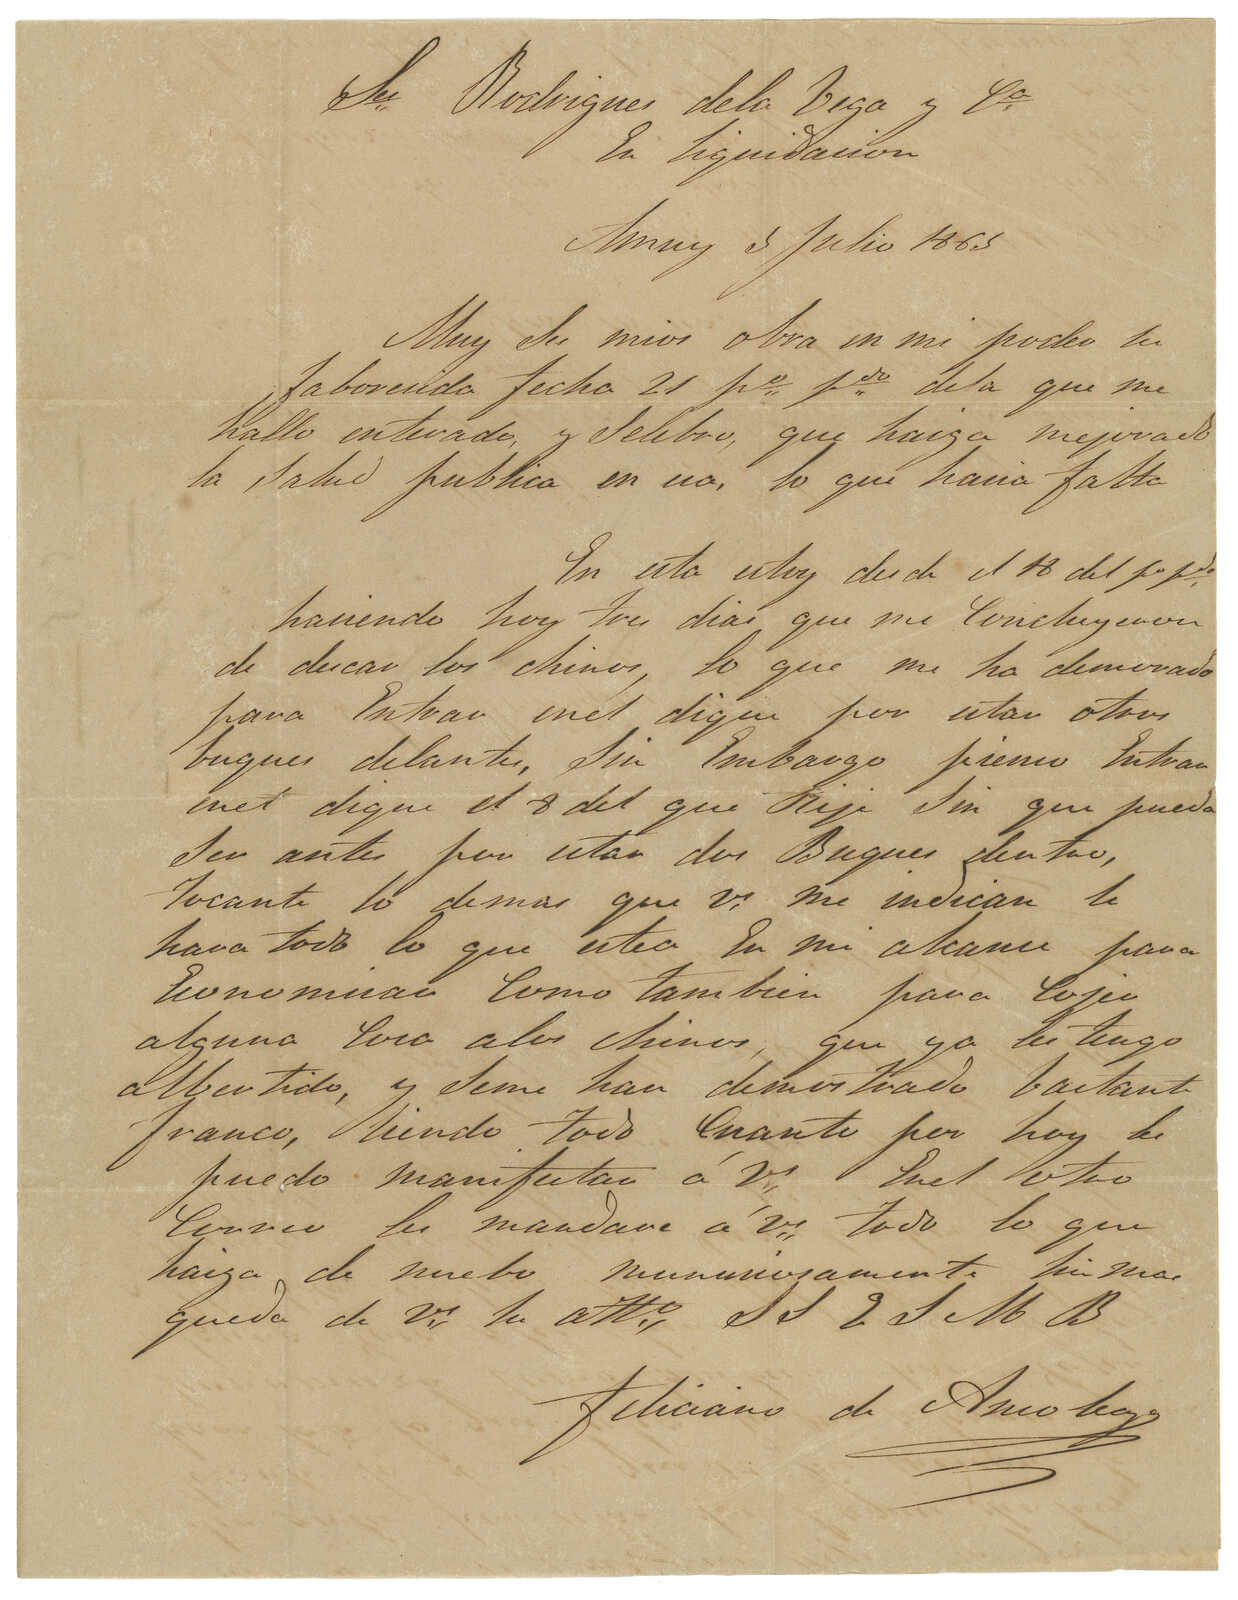 Sres Rodrigues dela Vega y Ca
En Liquidacion
Amuy 5 Julio 1865
Muy Sres mios obra en mi poder su
faborecida fecha 21 po pdo dela que me
hallo enterado, y Selebro, que haiga mejorado
la Salud publica en esa, lo que hacia falta
En esta estoy desde el 18 del po pdo
haciendo hoy tres dias que me Concluyeron
de descar los chinos, lo que me ha demorado
para Entrar enel dique por estar otros
buques delantes, Sin Embargo pienso Entrar
enel dique el 8 del que Rije Sin que pueda
Ser antes por estar dos Buques dentro,
tocante lo demas que Vs me indican se
hara todo lo que estea En mi alcance para
Economisar Como tambien para Cojer
alguna Cosa alos chinos, que ya les tengo
albertido, y Seme han demostrado bastante
franco, Siendo todo Cuanto por hoy les
puedo manifestar á Vs. Enel otro
Correo les mandare á Vs. todo lo que
haiga de nuebo Sin mas
queda de Vs. su atto. S S Q S M B
Feliciano de